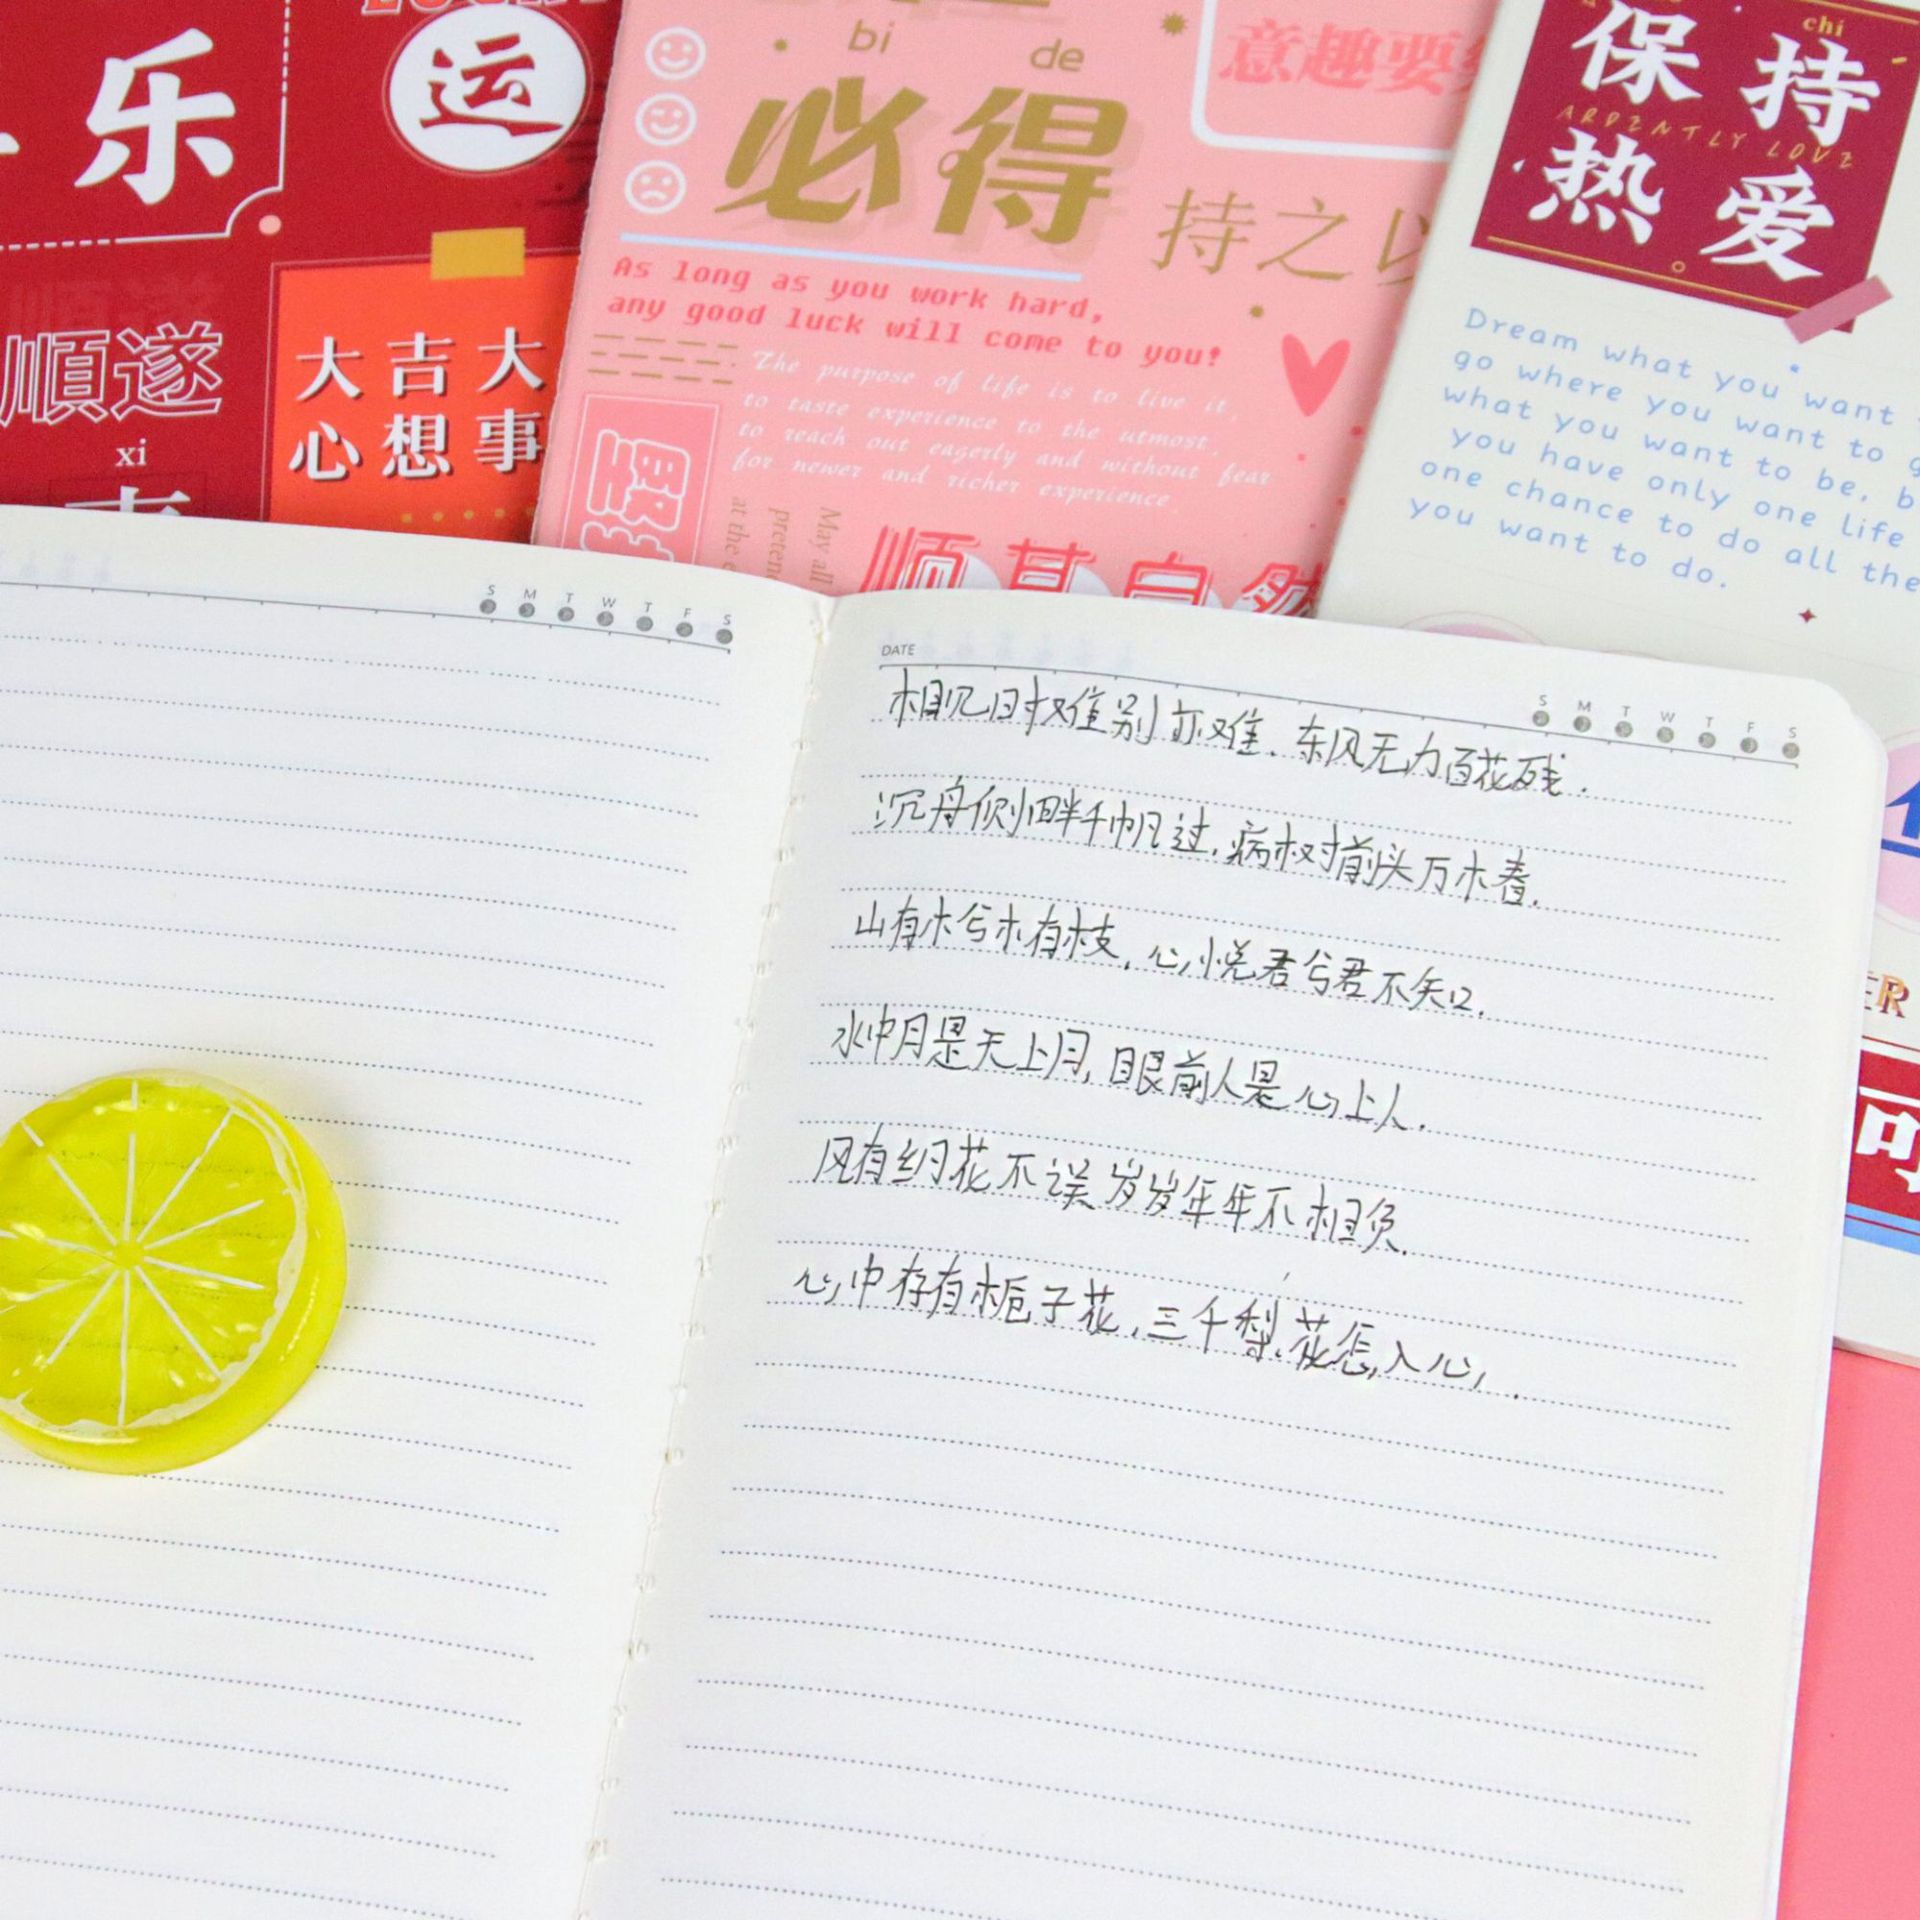 乐
运
順遂
xi
大吉大
心想事
bi de
必得
意趣要
持之以
As long as you work hard,
any good luck will come to you!
The purpose of life is to live it,
to taste experience to the utmost,
to reach out eagerly and without fear
for newer and richer experience.
May all
at the
顺其自然
chi
保持
ARDENTLY LOVE
热爱
Dream what you want
go where you want to
what you want to be,
you have only one life
one chance to do all the
you want to do.
S M T W T F S
DATE
S M T W T F S
相见时难别亦难.东风无力百花残.
沉舟侧畔千帆过,病树前头万木春.
山有木兮木有枝,心悦君兮君不知.
水中月是天上月,眼前人是心上人.
风有约花不误岁岁年年不相负.
心中存有栀子花,三千梨花怎入心.
ER
可